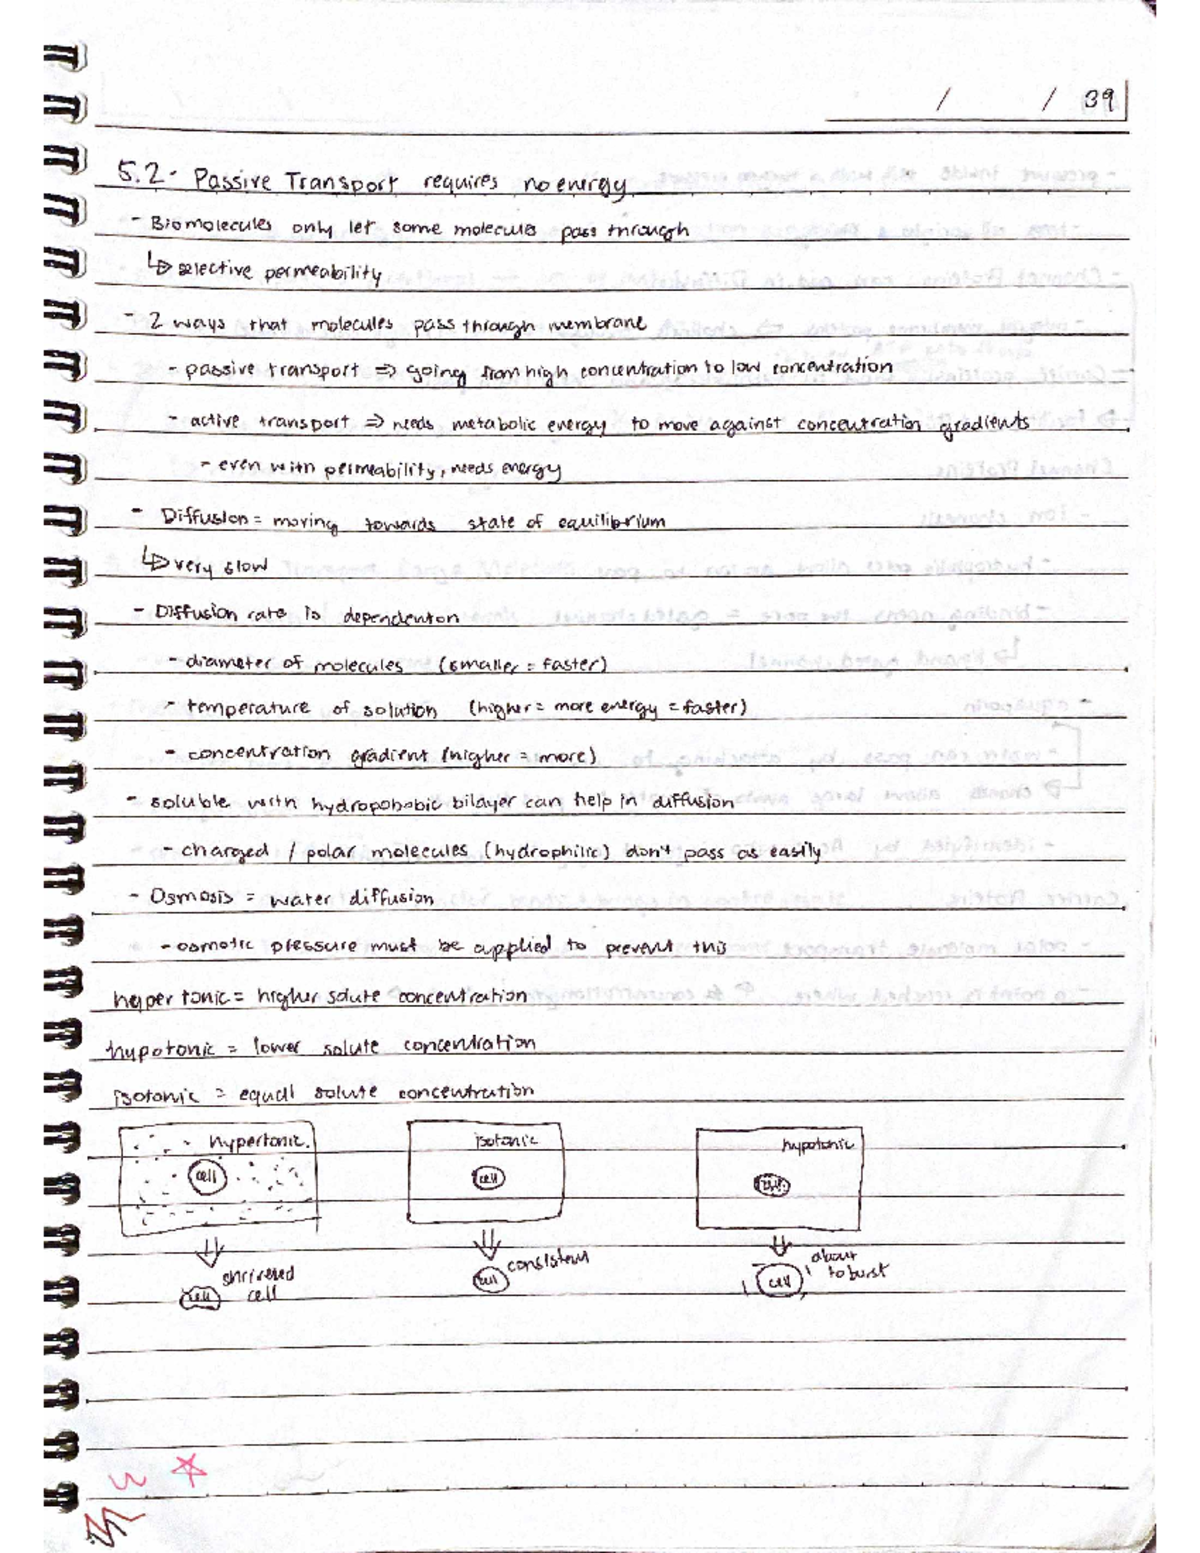 / / 39
5.2 - Passive Transport requires no energy
- Biomolecules only let some molecules pass through
↳ selective permeability
- 2 ways that molecules pass through membrane
- passive transport ⇒ going from high concentration to low concentration
- active transport ⇒ needs metabolic energy to move against concentration gradients
- even with permeability, needs energy
- Diffusion = moving towards state of equilibrium
↳ very slow
- Diffusion rate is dependent on
- diameter of molecules (smaller = faster)
- temperature of solution (higher = more energy = faster)
- concentration gradient (higher = more)
- soluble with hydropohobic bilayer can help in diffusion
- charged / polar molecules (hydrophilic) don't pass as easily
- Osmosis = water diffusion
- osmotic pressure must be applied to prevent this
hyper tonic = higher solute concentration
hypotonic = lower solute concentration
isotonic = equal solute concentration
hypertonic isotonic hypotonic
cell cell cell
shriveled cell consistent about to burst
cell cell cell